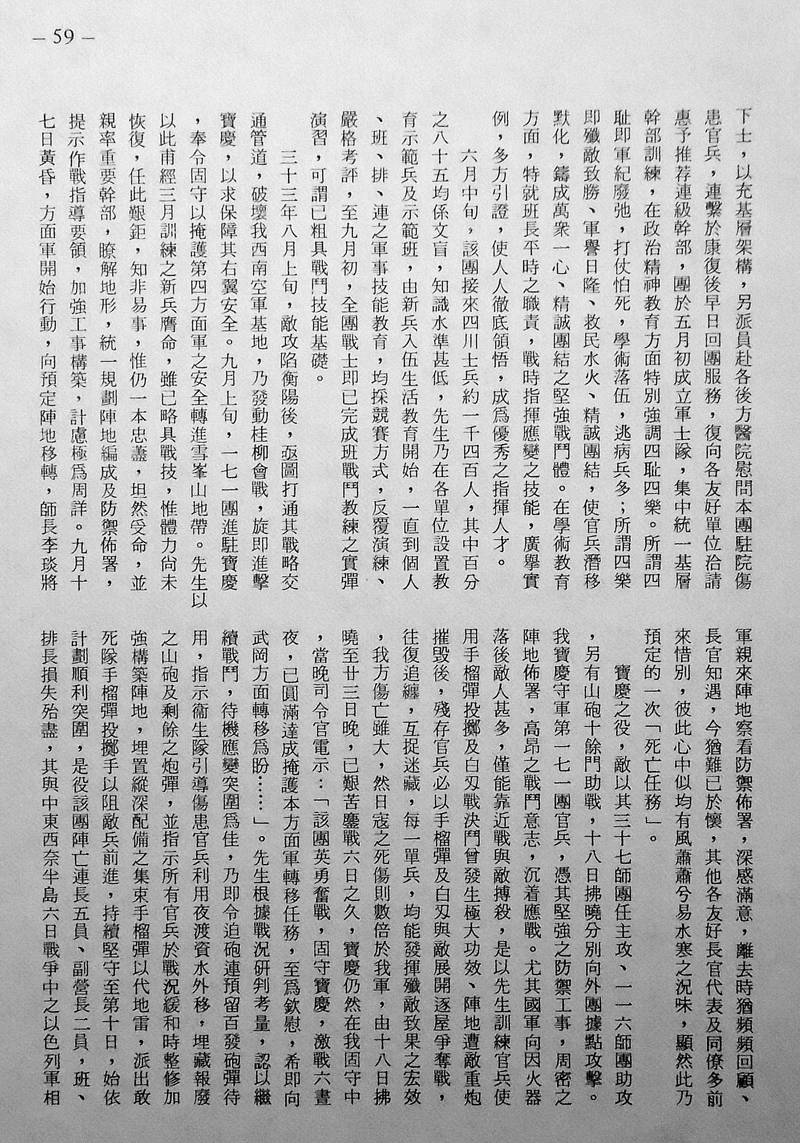 – 59 –
下士，以充基層架構，另派員赴各後方醫院慰問本團駐院傷
患官兵，連繫於康復後早日回團服務，復向各友好單位洽請
惠予推荐連級幹部，團於五月初成立軍士隊，集中統一基層
幹部訓練，在政治精神教育方面特別強調四耻四樂。所謂四
耻即軍紀廢弛，打仗怕死，學術落伍，逃病兵多；所謂四樂
即殲敵致勝、軍譽日隆、救民水火、精誠團結，使官兵潛移
默化，鑄成萬衆一心、精誠團結之堅強戰鬥體。在學術教育
方面，特就班長平時之職責，戰時指揮應變之技能，廣舉實
例，多方引證，使人人徹底領悟，成爲優秀之指揮人才。
六月中旬，該團接來四川士兵約一千四百人，其中百分
之八十五均係文盲，知識水準甚低，先生乃在各單位設置教
育示範兵及示範班，由新兵入伍生活教育開始，一直到個人
、班、排、連之軍事技能教育，均採競賽方式，反覆演練、
嚴格考評，至九月初，全團戰士即已完成班戰鬥教練之實彈
演習，可謂已粗具戰鬥技能基礎。
三十三年八月上旬，敵攻陷衡陽後，亟圖打通其戰略交
通管道，破壞我西南空軍基地，乃發動桂柳會戰，旋即進擊
寶慶，以求保障其右翼安全。九月上旬，一七一團進駐寶慶
，奉令固守以掩護第四方面軍之安全轉進雪峯山地帶。先生以
以此甫經三月訓練之新兵膺命，雖已略具戰技，惟體力尚未
恢復，任此艱鉅，知非易事，惟仍一本忠藎，坦然受命，並
親率重要幹部，瞭解地形，統一規劃陣地編成及防禦佈署，
提示作戰指導要領，加強工事構築，計慮極爲周詳。九月十
七日黃昏，方面軍開始行動，向預定陣地移轉，師長李琰將
軍親來陣地察看防禦佈署，深感滿意，離去時猶頻頻回顧、
長官知遇，今猶難已於懷，其他各友好長官代表及同僚多前
來惜別，彼此心中似均有風蕭蕭兮易水寒之況味，顯然此乃
預定的一次「死亡任務」。
寶慶之役，敵以其三十七師團任主攻、一一六師團助攻
，另有山砲十餘門助戰，十八日拂曉分別向外團據點攻擊。
我寶慶守軍第一七一團官兵，憑其堅強之防禦工事，周密之
陣地佈署，高昂之戰鬥意志，沉着應戰。尤其國軍向因火器
落後敵人甚多，僅能靠近戰與敵搏殺，是以先生訓練官兵使
用手榴彈投擲及白刃戰決鬥曾發生極大功效、陣地遭敵重炮
摧毀後，殘存官兵必以手榴彈及白刃與敵展開逐屋爭奪戰，
往復追纏，互捉迷藏，每一單兵，均能發揮殲敵致果之宏效
，我方傷亡雖大，然日寇之死傷則數倍於我軍，由十八日拂
曉至廿三日晚，已艱苦鏖戰六日之久，寶慶仍然在我固守中
，當晚司令官電示：「該團英勇奮戰，固守寶慶，激戰六晝
夜，已圓滿達成掩護本方面軍轉移任務，至爲欽慰，希即向
武岡方面轉移爲盼……」。先生根據戰況研判考量，認以繼
續戰鬥，待機應變突圍爲佳，乃即令迫砲連預留百發砲彈待
用，指示衞生隊引導傷患官兵利用夜渡資水外移，埋藏報廢
之山砲及剩餘之炮彈，並指示所有官兵於戰況緩和時整修加
強構築陣地，埋置縱深配備之集束手榴彈以代地雷，派出敢
死隊手榴彈投擲手以阻敵兵前進，持續堅守至第十日，始依
計劃順利突圍，是役該團陣亡連長五員、副營長二員，班、
排長損失殆盡，其與中東西奈半島六日戰爭中之以色列軍相